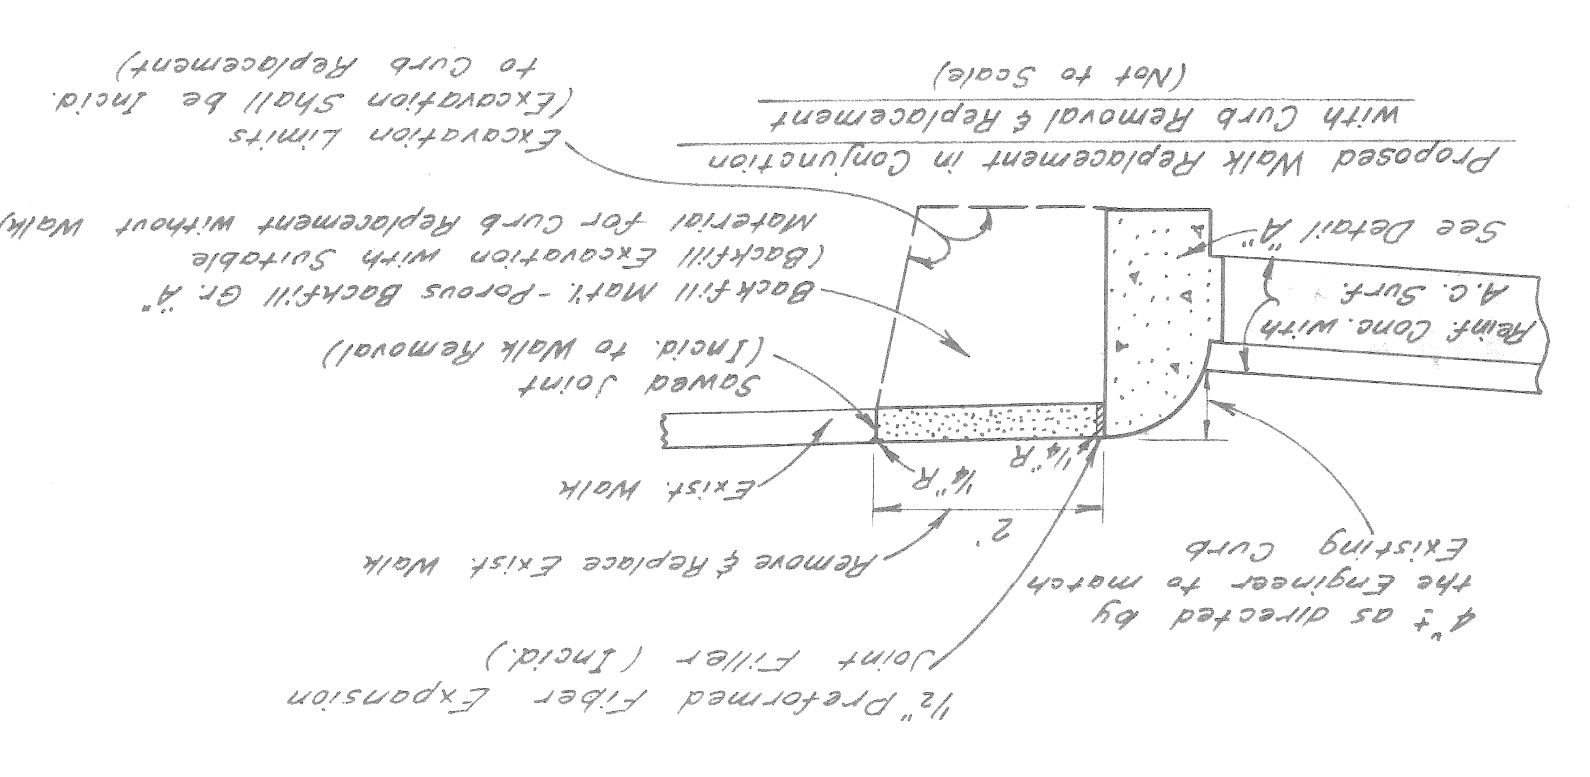 1/2" Preformed Fiber Expansion
Joint Filler (Incid.)
4"± as directed by
the Engineer to match
Existing Curb
Remove & Replace Exist. Walk
2'
Exist. Walk
1/4" R
1/4" R
Sawed Joint
(Incid. to Walk Removal)
Reinf. Conc. with
A.C. Surf.
See Detail "A"
Backfill Mat'l. - Porous Backfill Gr. "A"
(Backfill Excavation with Suitable
Material for Curb Replacement without Walk)
Excavation Limits
(Excavation Shall be Incid.
to Curb Replacement)
Proposed Walk Replacement in Conjunction
with Curb Removal & Replacement
(Not to Scale)